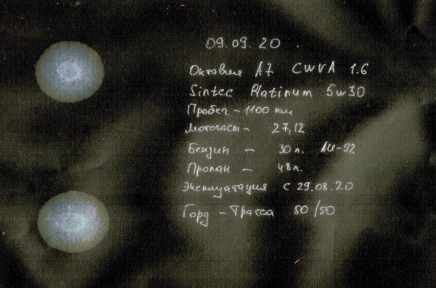 09.09.20
Октавия А7 CWVA 1.6
Sintec Platinum 5w30
Пробег - 1100 км
Моточасы - 27,12
Бензин - 30 л. АИ-92
Пропан - 48 л.
Эксплуатация с 29.08.20
Город - Трасса 50/50